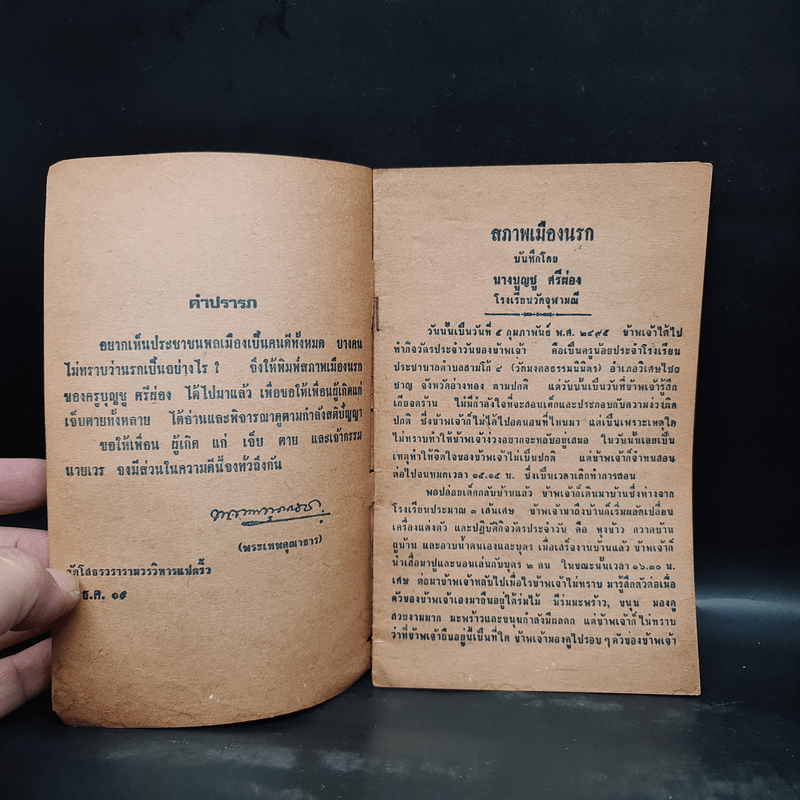 คำปรารภ
อยากเห็นประชาชนพลเมืองเป็นคนดีทั้งหมด บางคน
ไม่ทราบว่านรกเป็นอย่างไร ? จึงให้พิมพ์สภาพเมืองนรก
ของครูบุญชู ศรีผ่อง ได้ไปมาแล้ว เพื่อขอให้เพื่อนผู้เกิดแก่
เจ็บตายทั้งหลาย ได้อ่านและพิจารณาดูตามกำลังสติปัญญา
ขอให้เพื่อน ผู้เกิด แก่ เจ็บ ตาย และเจ้ากรรม
นายเวร จงมีส่วนในความดีนี้จงทั่วถึงกัน
(พระเทพคุณาธาร)
วัดโสธรวรารามวรวิหารแปดริ้ว
ธ.ค. ๑๙
สภาพเมืองนรก
บันทึกโดย
นางบุญชู ศรีผ่อง
โรงเรียนวัดจุฬามณี
วันนั้นเป็นวันที่ ๕ กุมภาพันธ์ พ.ศ. ๒๔๙๕ ข้าพเจ้าได้ไป
ทำกิจวัตรประจำวันของข้าพเจ้า คือเป็นครูน้อยประจำโรงเรียน
ประชาบาลตำบลสามโก้ ๔ (วัดมงคลธรรมนิมิตร) อำเภอวิเศษไชย
ชาญ จังหวัดอ่างทอง ตามปกติ แต่วันนั้นเป็นวันที่ข้าพเจ้ารู้สึก
เกียจคร้าน ไม่มีกำลังใจที่จะสอนเด็กและประกอบกับความง่วงผิด
ปกติ ซึ่งข้าพเจ้าก็ไม่ได้ไปอดนอนที่ไหนมา แต่เป็นเพราะเหตุใด
ไม่ทราบทำให้ข้าพเจ้าง่วงอยากจะหลับอยู่เสมอ ในวันนั้นเลยเป็น
เหตุทำให้จิตใจของข้าพเจ้าไม่เป็นปกติ แต่ข้าพเจ้าก็จำทนสอน
ต่อไปจนหมดเวลา ๑๕.๑๕ น. ซึ่งเป็นเวลาเลิกทำการสอน
พอปล่อยเด็กกลับบ้านแล้ว ข้าพเจ้าก็เดินมาบ้านซึ่งห่างจาก
โรงเรียนประมาณ ๓ เส้นเศษ ข้าพเจ้ามาถึงบ้านก็เริ่มผลัดเปลี่ยน
เครื่องแต่งตัว และปฏิบัติกิจวัตรประจำวัน คือ หุงข้าว กวาดบ้าน
ถูบ้าน และอาบน้ำตนเองและบุตร เมื่อเสร็จงานบ้านแล้ว ข้าพเจ้าก็
นำเสื่อมาปูและนอนเล่นกับบุตร ๒ คน ในขณะนั้นเวลา ๑๖.๓๐ น.
เศษ ต่อมาข้าพเจ้าหลับไปเมื่อไรข้าพเจ้าไม่ทราบ มารู้สึกตัวต่อเมื่อ
ตัวของข้าพเจ้าเองมายืนอยู่ใต้ร่มไม้ มีร่มมะพร้าว, ขนุน มองดู
สวยงามมาก มะพร้าวและขนุนกำลังมีผลดก แต่ข้าพเจ้าก็ไม่ทราบ
ว่าที่ข้าพเจ้ายืนอยู่นี้เป็นที่ใด ข้าพเจ้ามองดูไปรอบ ๆ ตัวของข้าพเจ้า